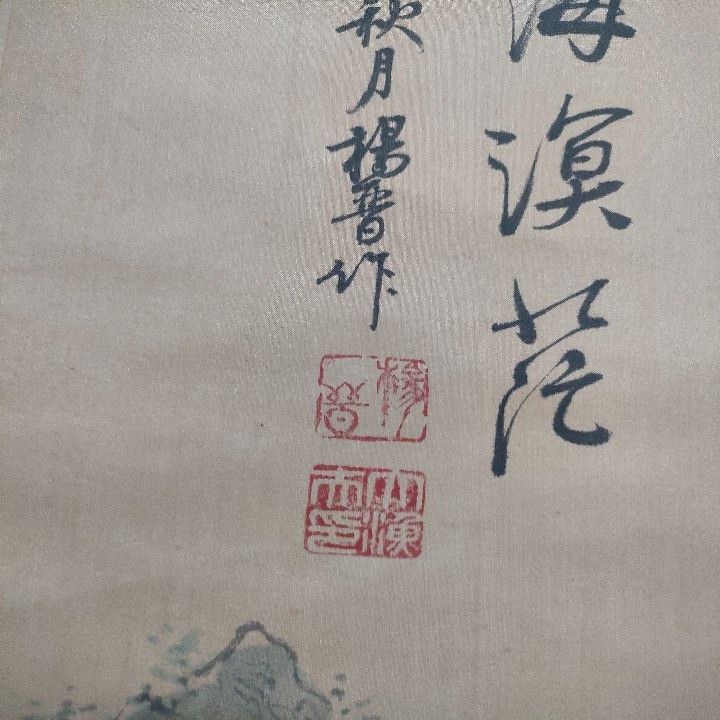 海溟茫
秋月楊晋作
楊晉